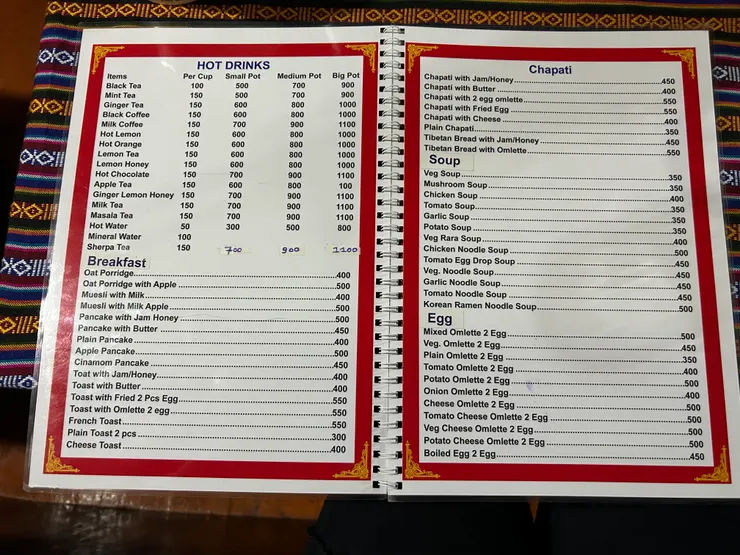 HOT DRINKS
Items Per Cup Small Pot Medium Pot Big Pot
Black Tea 100 500 700 900
Mint Tea 150 500 700 900
Ginger Tea 150 600 800 1000
Black Coffee 150 600 800 1000
Milk Coffee 150 700 900 1100
Hot Lemon 150 600 800 1000
Hot Orange 150 600 800 1000
Lemon Tea 150 600 800 1000
Lemon Honey 150 600 800 1000
Hot Chocolate 150 700 900 1100
Apple Tea 150 600 800 100
Ginger Lemon Honey 150 700 900 1100
Milk Tea 150 700 900 1100
Masala Tea 150 700 900 1100
Hot Water 50 300 500 800
Mineral Water 100
Sherpa Tea 150 700 900 1100
Breakfast
Oat Porridge 400
Oat Porridge with Apple 500
Muesli with Milk 400
Muesli with Milk Apple 500
Pancake with Jam Honey 500
Pancake with Butter 450
Plain Pancake 400
Apple Pancake 500
Cinamom Pancake 450
Toat with Jam/Honey 400
Toast with Butter 400
Toast with Fried 2 Pcs Egg 550
Toast with Omlette 2 egg 550
French Toast 550
Plain Toast 2 pcs 300
Cheese Toast 400
Chapati
Chapati with Jam/Honey 450
Chapati with Butter 400
Chapati with 2 egg omlette 550
Chapati with Fried Egg 550
Chapati with Cheese 400
Plain Chapati 350
Tibetan Bread with Jam/Honey 450
Tibetan Bread with Omlette 550
Soup
Veg Soup 350
Mushroom Soup 350
Chicken Soup 400
Tomato Soup 350
Garlic Soup 350
Potato Soup 350
Veg Rara Soup 400
Chicken Noodle Soup 500
Tomato Egg Drop Soup 450
Veg. Noodle Soup 450
Garlic Noodle Soup 450
Tomato Noodle Soup 450
Korean Ramen Noodle Soup 500
Egg
Mixed Omlette 2 Egg 500
Veg. Omlette 2 Egg 450
Plain Omlette 2 Egg 350
Tomato Omlette 2 Egg 400
Potato Omlette 2 Egg 500
Onion Omlette 2 Egg 400
Cheese Omlette 2 Egg 500
Tomato Cheese Omlette 2 Egg 500
Veg Cheese Omlette 2 Egg 500
Potato Cheese Omlette 2 Egg 500
Boiled Egg 2 Egg 450